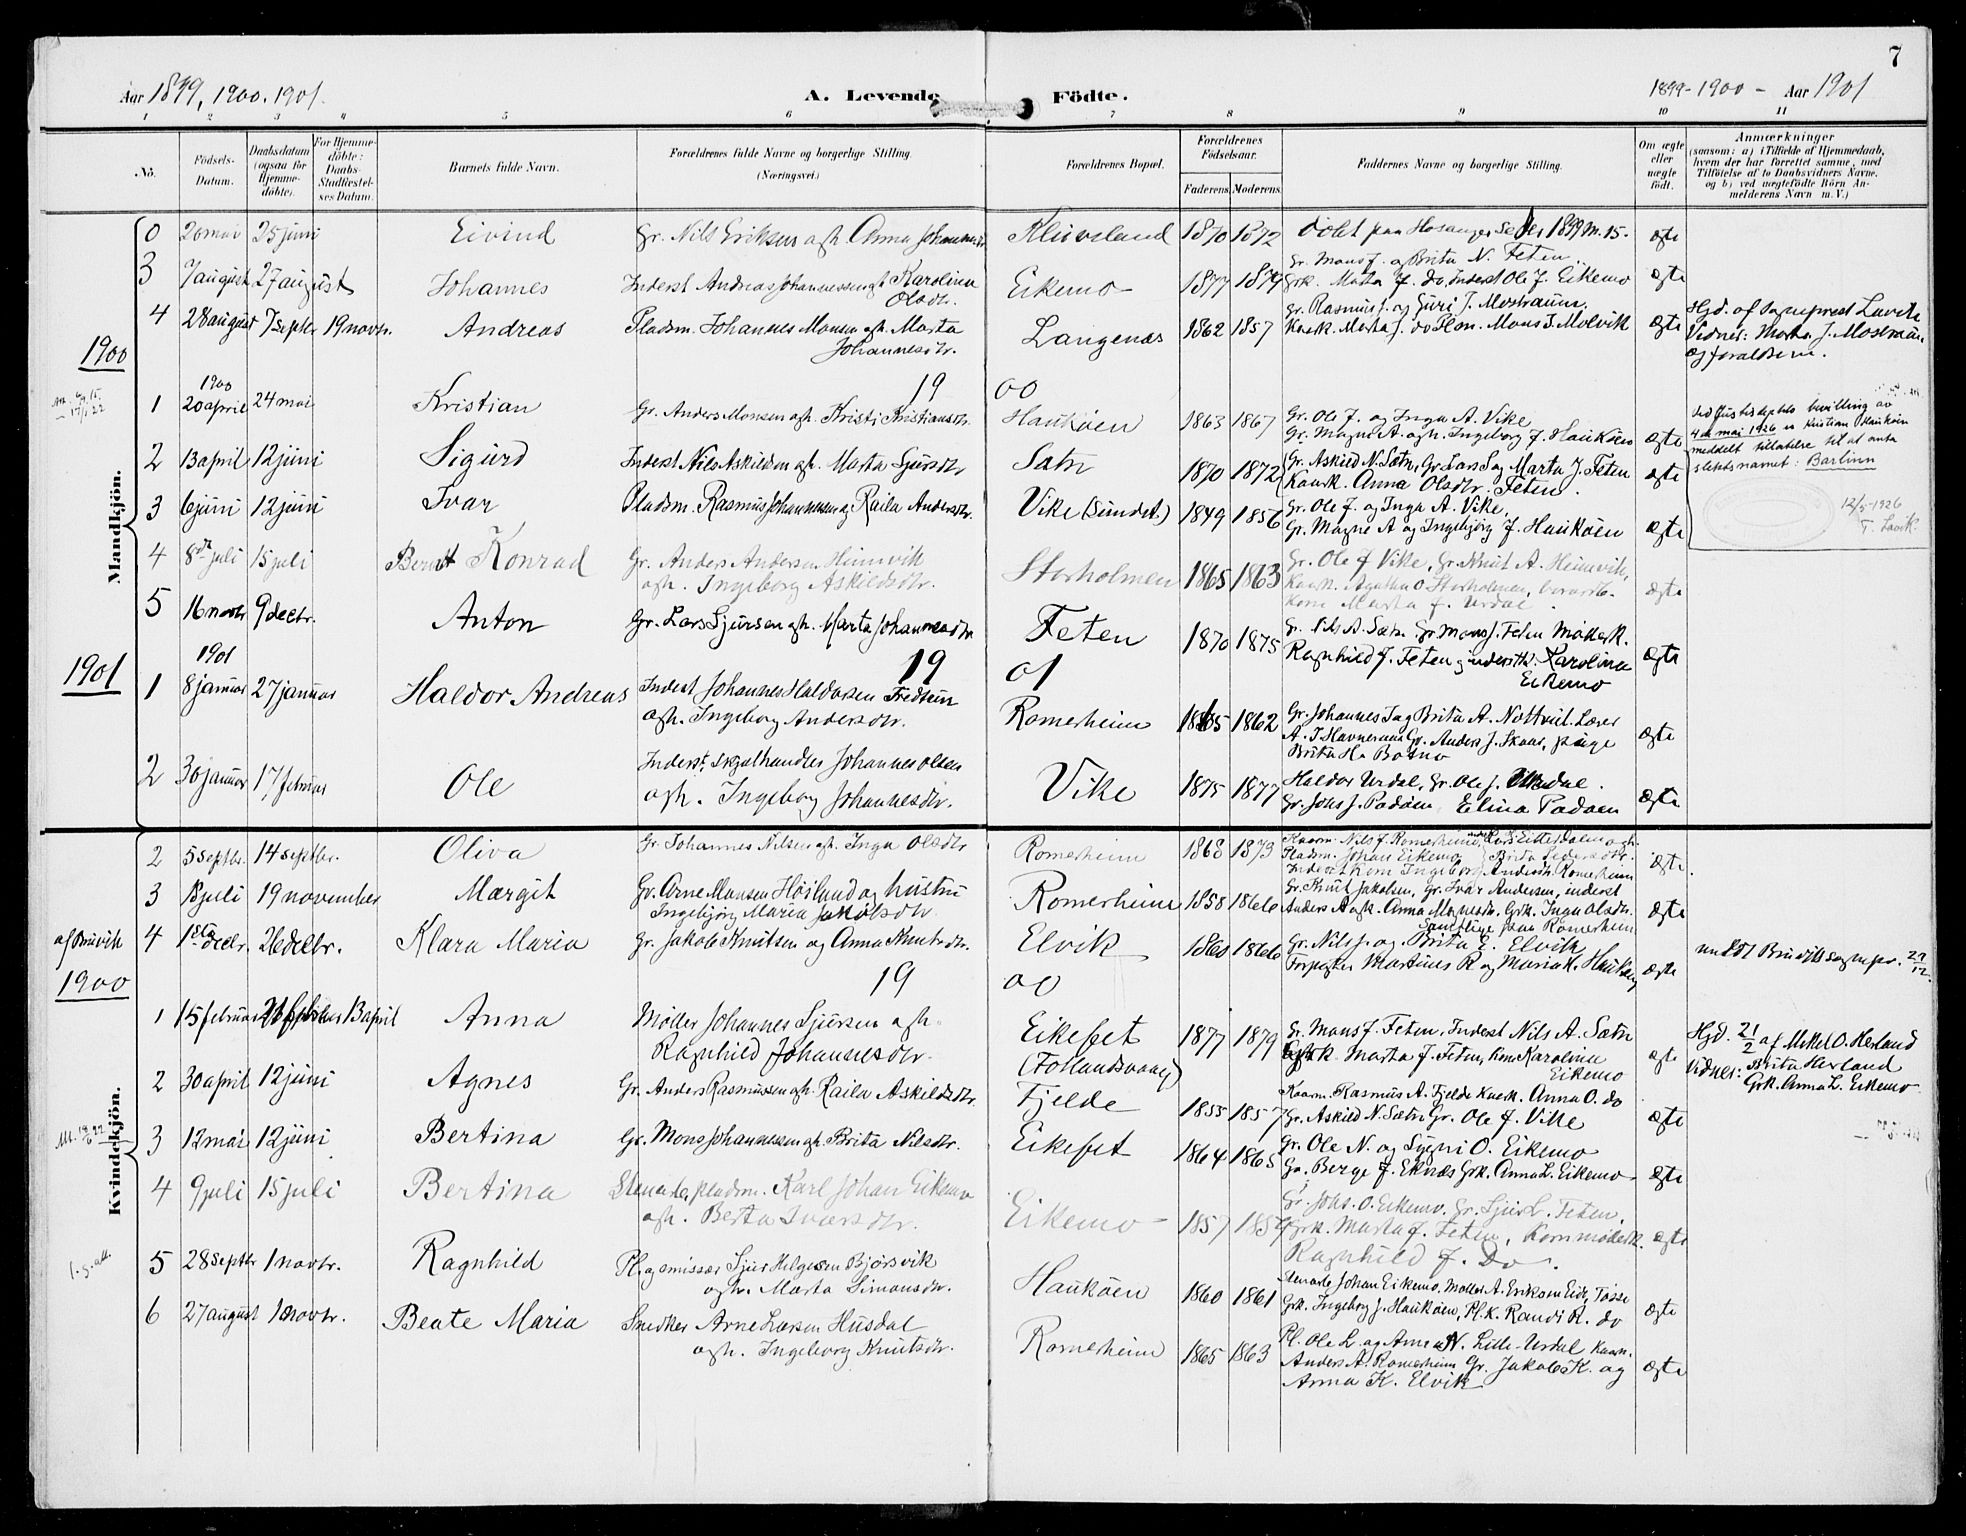 7
Aar 1899, 1900. 1901. A. Levende Födte. 1899-1900 - Aar 1901
1 2 3 4 5 6 7 8 9 10 11
No. Födsels-Datum. Daabsdatum (ogsaa för Hjemmedöbte). For Hjemmedöbte: Daabs-Stadfæstelses Datum. Barnets fulde Navn. Forældrenes fulde Navne og borgerlige Stilling. (Næringsvei.) Forældrenes Bopæl. Forældrenes Födselsaar. Faderens. Moderens. Faddernes Navne og borgerlige Stilling. Om ægte eller uægte født. Anmærkninger (saasom: a) i Tilfælde af Hjemmedaab, hvem der har forrettet samme, med Tilföielse af to Daabsvidners Navne, og b) ved uægtefödte Börn Anmelderens Navn m. V.)
Mandkjön.
0 20 mai 25 juni Eivind Gr. Nils Eriksen ogh. Anna Johannesdr. 1870 1872 1899 ægte
3 7 august 27 august Johannes Inderst Andreas Johannessen ogh. Karolina Olsdr. Eikemo 1877 1879 Gr. Mons J. og Brita N. Feten. Grk. Marta J. do, Inderst Ole J. Eikemo ægte
4 28 august 7 septbr 19 novbr. Andreas Pladsm. Johannes Monsen ogh. Marta Johannesdr. Langenæs 1862 1857 Gr. Rasmus J. og Guri J. Mostraum. Mons J. Molvik ægte Hjd. af Sogneprest Lavik Vidner: Marta J. Mostraum og forældrene.
1900 19 00
1 1900 20 april 24 mai Kristian Gr. Anders Monsen ogh. Kristi Kristiansdr. Haukøen 1863 1867 Gr. Ole J. og Inga A. Vike Gr. Magne A. ogh. Ingeborg J. Haukøen ægte
Ved Justisdeptets bevilling av 4de mai 1926 er Kristian Haukøen meddelt tillatelse til at anta slektsnavnet: Barlinn
12/5-1926 T. Lavik.
2 13 april 12 juni Sigurd Inderst Nils Askildsen ogh. Marta Sjursdr Sætr 1870 1872 Gr. Askild N. Sætr, Gr. Lars S. og Marta J. Feten Kaark. Anna Olsdr. Feten. ægte
3 6 juni 12 juni Ivar Pladsm. Rasmus Johannessen og Raila Andersdr. Vike (Sundet.) 1849 1856 Gr. Ole J. og Inga A. Vike, Gr. Magne A og Ingebjørg J. Haukøen ægte
4 8de juli 15 juli Berndt Konrad Gr. Anders Andersen Heimvik ogh. Ingeborg Askildsdr. Storholmen 1865 1863 Gr. Ole J Vike, Gr. Knut A. Heimvik, Kaark. Agatha O. Storholmen, Marta J. Urdal. ægte
5 16 novbr 9 decbr. Anton Gr. Lars Sjursen ogh. Marta Johannesdr Feten 1870 1875 Gr. Nils A. Sætr. Gr Mons J. Feten Møllerk. Ragnhild J. Feten Karolina Eikemo ægte
1901 19 01
1 1901 8 januar 27 januar Haldor Andreas Inderst Johannes Haldorsen Fredtun ogh. Ingeborg Andersdr. Romerheim 1865 1862 Gr. Johannes J og Brita A. Nottveit. Lærer Gr. Anders J. Skaar, pige Brita H. Botnø ægte
2 30 januar 17 februar Ole Inderst, Skjælhandler Johannes Olsen ogh. Ingeborg Johannesdr. Vike 1875 1877 Haldor Urdal, Gr. Ole J. Urdal. Gr. Johs J. Padøen, Elina Padøen ægte
Kvindekjön.
2 5 septbr. 14 septbr. Oliva Gr. Johannes Nilsen ogh. Inga Olsdr Romerheim 1868 1873 Kaarm. Nils J. Romerheim, Lars E. Pladsm. Johan Eikemo Brita Inderstkone Ingeborg Andersdr. Romerheim ægte
3 juli 19 november Margit Gr. Arne Monsen Höiland og hustru Ingebjörg Maria Jakobsdr. Romerheim 1858 1866 Gr. Knut Jakobsen, Gr. Ivar Andersen, inderst Anders A ogh. Anna Magnesdr. Grk. Inga Olsdr. Samtlige paa Romerheim ægte
af Bruvik 4 1ste decbr. 26 decbr. Klara Maria Gr. Jakob Knutsen og Anna Knutsdr. Elvik 1860 1866 Gr. Nils J. og Brita E. Elvik Forpagter Martinus R og Maria K. ægte
1900 19 00
1 15 februar 13 april Anna Møller Johannes Sjursen ogh. Ragnhild Johannesdr. Eikefet (Follandsvaag) 1877 1879 Gr. Mons J. Feten, Inderst Nils A. Sætr Marta J. Feten, Karolina Eikemo ægte Hjd. 21/2 af Mikel O. Herland Vidner: Brita Herland Grk. Anna L. Eikemo
2 30 april 12 juni Agnes Gr. Anders Rasmussen ogh. Raila Askildsdr. Fjelde 1855 1857 Kaarm. Rasmus A. Fjelde Kaark. Anna O. do Gr. Askild N. Sætr Gr. Ole J. Vike ægte
3 12 mai 12 juni Bertina Gr. Mons Johannessen ogh. Brita Nilsdr. Eikefet 1864 1865 Gr. Ole N. og Sygni O. Eikemo Gr. Berge J. Eknæs Grk. Anna L. Eikemo ægte
4 9 juli 15 juli Bertina pladsm. Karl Johan Eikemo ogh. Berta Iversdr. Eikemo 1857 Gr. Johs. O. Eikemo, Gr. Sjur L. Feten, Grk. Marta J. Feten, Ragnhild J. Do. ægte
5 28 septbr 1 novbr. Ragnhild Pl. og emissær Sjur Helgesen Bjørsvik ogh. Marta Simonsdr. Haukøen 1860 1861 Johan Eikemo, Møller A. Eriksen Eide, Tøsse Grk. Ingeborg J. Haukøen, Pl.k. Randi R. do ægte
6 27 august 1 novbr. Beate Maria Snedker Arne Larsen Husdal ogh. Ingeborg Knutsdr. Romerheim 1865 1863 Pl. Ole L. og Anna N. Lille-Urdal Kaarm. Anders A. Romerheim Gr. Jakob K. og Anna K. Elvik ægte